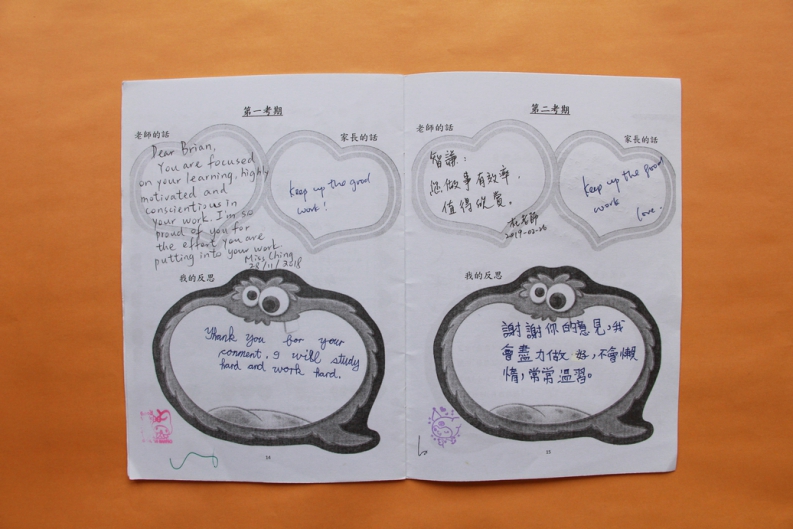 第一考期
老師的話
家長的話
Dear Brian,
You are focused
on your learning, highly
motivated and
conscientious in
your work. I'm so
proud of you for
the effort you are
putting into your work.
Miss Ching
28/11/2018
Keep up the good
work!
我的反思
Thank you for your
comment. I will study
hard and work hard.
14
第二考期
老師的話
家長的話
智謙:
您做事有效率,
值得欣賞。
老師
2019-02-26
Keep up the good
work
love.
我的反思
謝謝你的意見,我
會盡力做好,不會懶
惰,常常溫習。
15